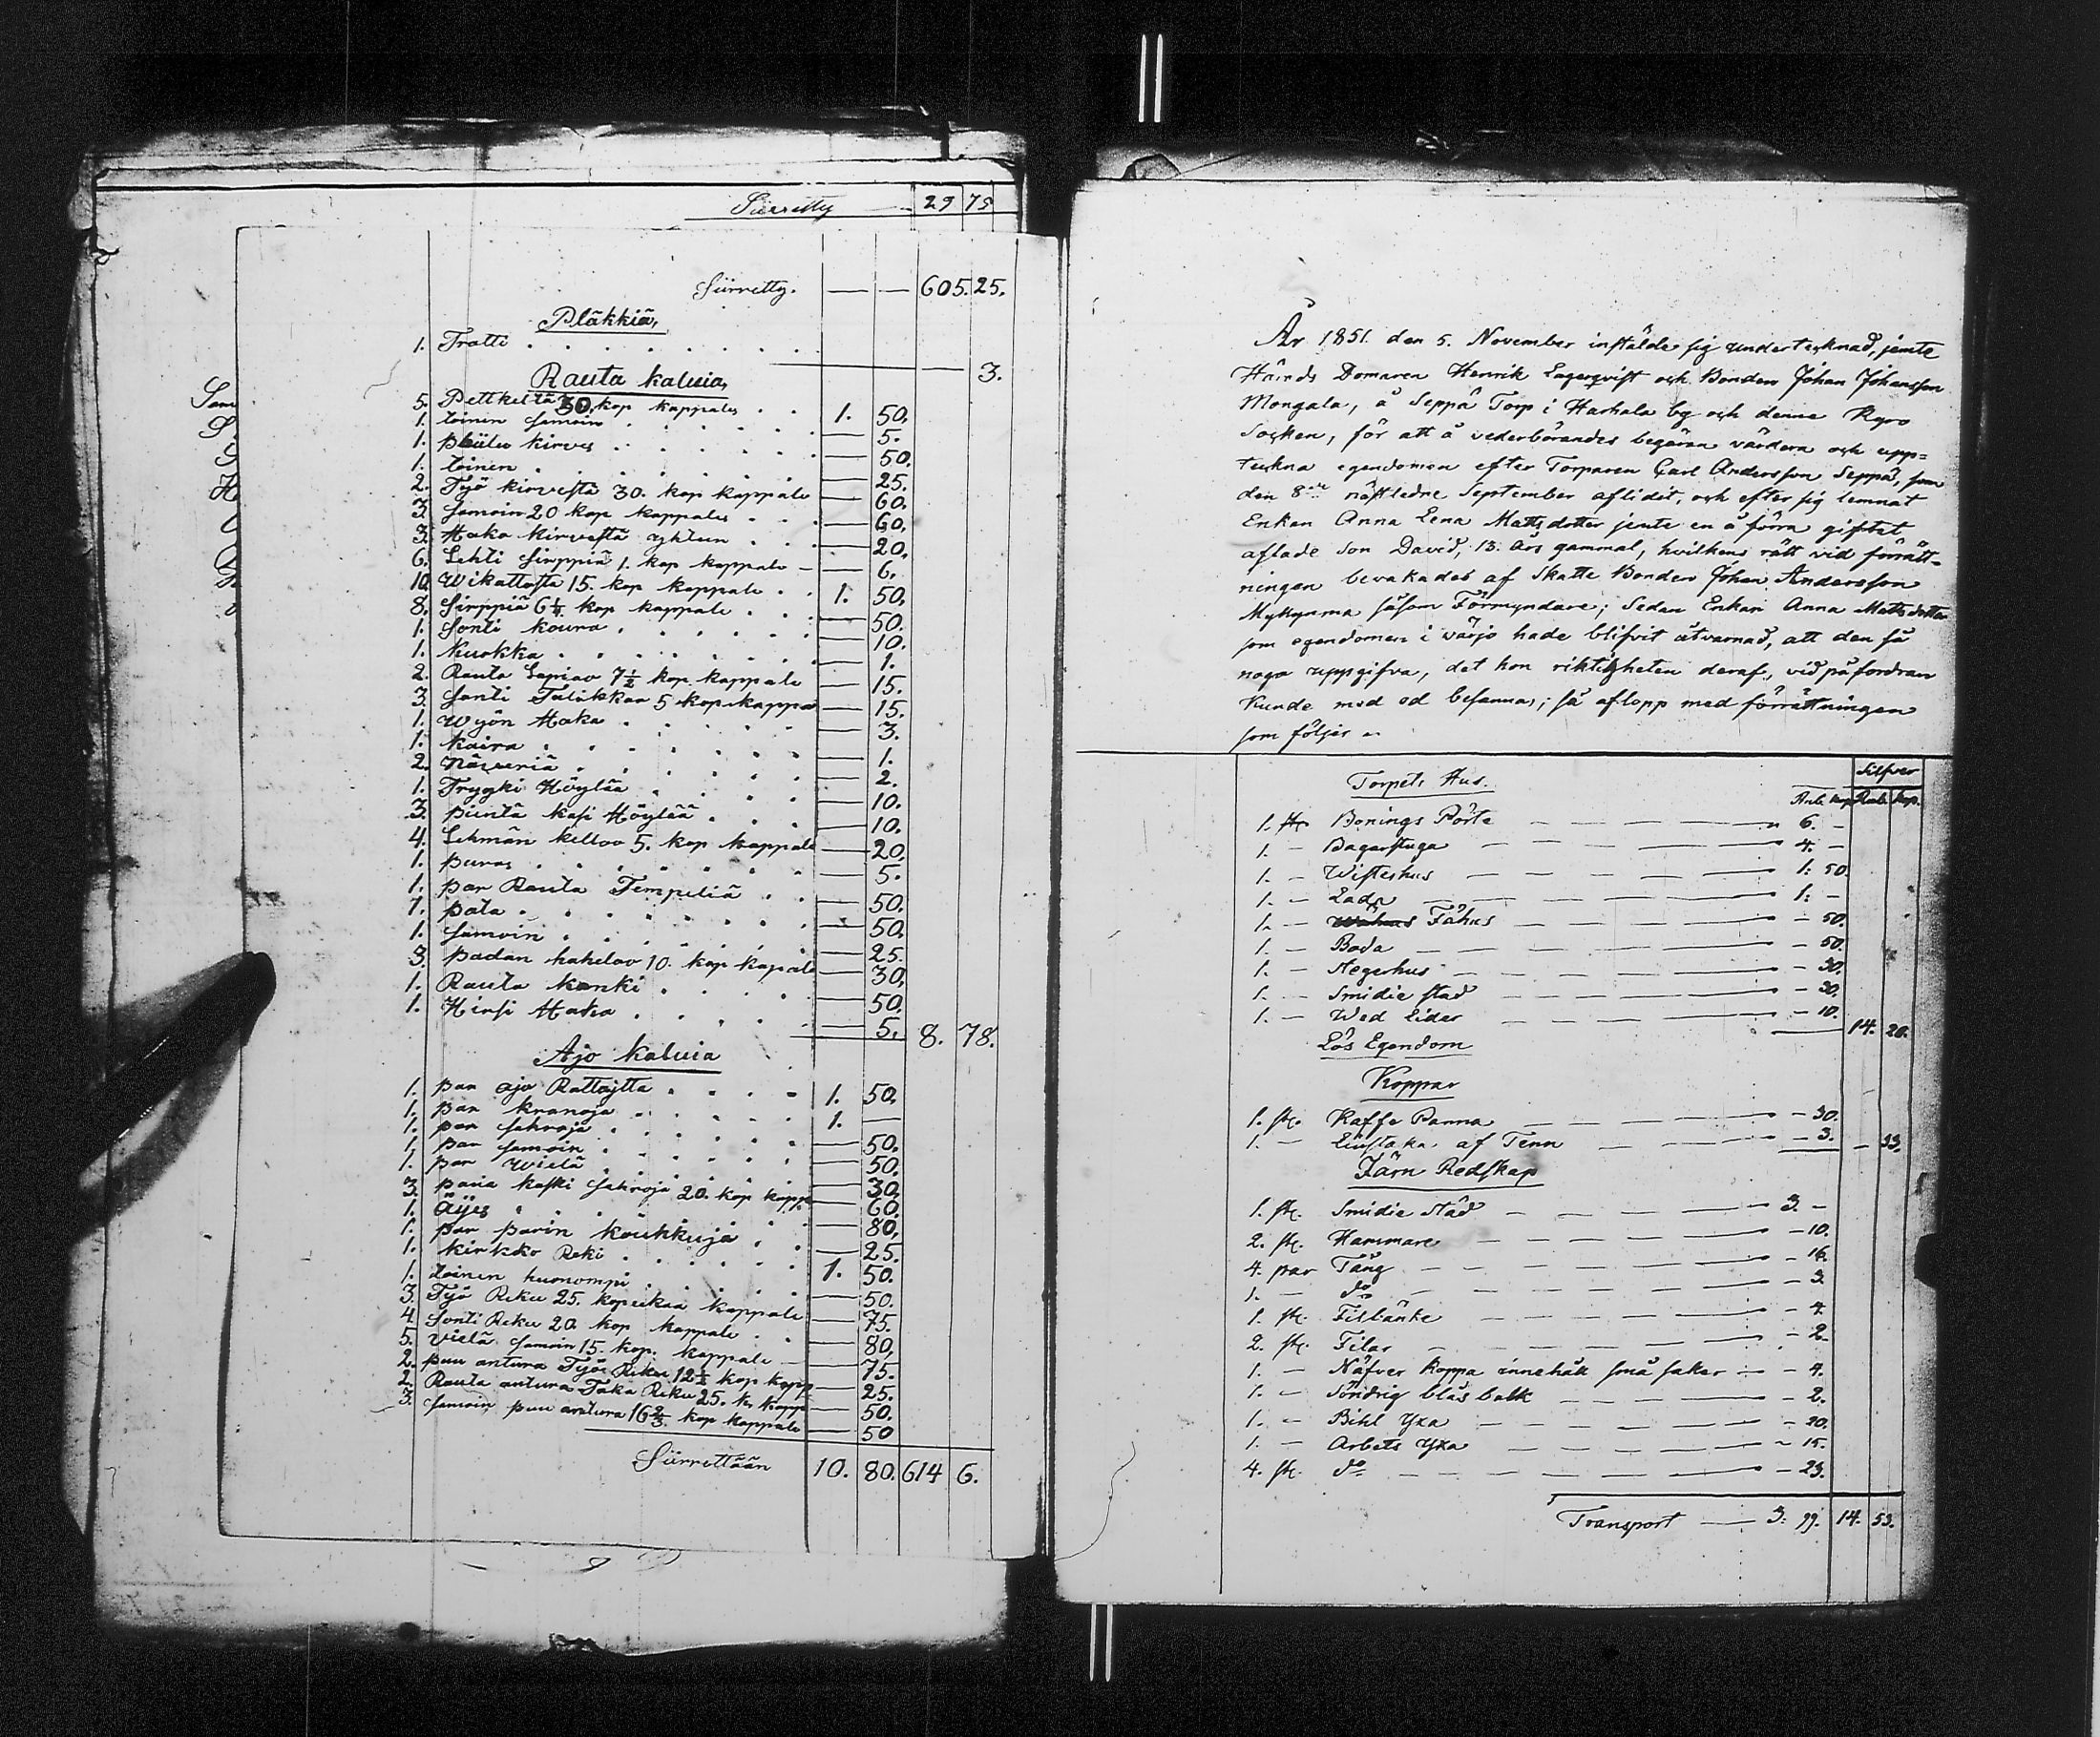 Siirretty — 29 75
Siirretty. — — 605. 25.
Pläkkiä,
1. Tratti . . . . . . — 3.
Rauta kaluia,
5. Pettkeltä 30. kop kappales . . 1. 50.
1. toinen samoin . . . — 5.
1. piilu kirves . . . — 50.
1. toinen . . . — 25.
2. Työ kirvestä 30. kop kappale — 60.
3. samoin 20 kop kappales . . — 60.
3. Hako kirvestä yhteen . . — 20.
6. Lehti sirppiä 1. kop kappale — 6.
10. Wikattosta 15. kop kappale . . 1. 50.
8. Sirppiä 6¼ kop kappale . . — 50.
1. Sonti koura . . . — 10.
1. Kuokka . . . — 1.
2. Rauta Lapiao 7½ kop kappale — 15.
3. Sonti Talikkoa 5 kop kappa — 15.
1. Wyön Haka . . . — 3.
1. Kaira . . . — 1.
2. Näweriä . . . — 2.
1. Trygki Höylää . . . — 10.
3. pientä käsi Höylää . . . — 10.
4. Lehmän kelloo 5. kop kappale — 20.
1. puras . . . — 5.
1. par Rauta Tempeliä . . — 50.
1. pata . . . — 50.
1. samoin . . . — 25.
3. padan haheloo 10. kop kapale — 30.
1. Rauta kanki . . . — 50.
1. Hirsi Haka . . . — 5. 8. 78.
Ajo kaluia
1. par ajo Rattajtta . . . 1. 50.
1. par kranoja . . . 1. —
1. par sahroja . . . — 50.
1. par samoin . . . — 50.
1. par wielä . . . — 30.
3. paria kaski sahroja 20. kop kapp — 60.
1. Äijes . . . — 80.
1. par parin koukkuja . . — 25.
1. kirkko Reki . . . 1. 50.
1. toinen huonompi . . . — 50.
3. Työ Reku 25. kopeikaa kappale — 75.
4. Sonti Reku 20. kop kappale . . — 80.
5. vielä samoin 15. kop. kappale — 75.
2. puu antura Työ Reku 12½ kop kapp — 25.
2. Rauta antura Taka Reku 25. k. kapp — 50.
3. samoin puu antura 16⅔ kop kappale — 50
Siirrettään 10. 80. 614 6.
År 1851. den 5. November instälde sig undertecknad, jemte
Härads Domaren Henrik Lagerqvist och Bonden Johan Johansson
Mongala, å Seppä Torp i Harhala by och denne Kyro
Socken, för att å vederbörandes begäran värdera och upp=
teckna egendomen efter Torparen Carl Andersson Seppä, som
den 8de nästledne September aflidit, och efter sig lemnat
Enkan Anna Lena Mattsdotter jemte en å förra giftet
aflade Son David, 13. års gammal, hvilkens rätt vid förrätt-
ningen bevakades af Skatte Bonden Johan Andersson
Myllymma såsom Förmyndare; Sedan Enkan Anna Mattsdotter
som egendomen i wärjo hade blifvit åtvarnad, att den så
noga uppgifva, det hon riktigheten deraf, vid påfordran
kunde med ed besanna; så aflopp med förrättningen
som följer
Torpets Hus. Silfver
Rub. kop Rub. kop.
1. st. Bonings Pörte — 6. -
1. - Bagarstuga — 4. -
1. - Wisteshus — 1: 50.
1. - Lada — 1: -
1. - Fähus — - 50.
1. - Boda — - 50.
1. - Aegerhus — - 30.
1. - Smidie stad — - 30.
1. - Wed Lider — - 10. 14. 20.
Lös Egendom
Koppar
1. st. Kaffe Panna — - 30.
1. - Liustaka af Tenn — - 3. - 33.
Järn Redskap
1. st. Smidie städ — 3. -
2. st. Hammare — - 10.
4. par Tång — - 16.
1. - do — - 3.
1. st. Filbänke — - 4.
2. st. Filar — - 2.
1. - Näfver koppa innehåk små saker — - 4.
1. - Söndrig blås balk — - 2.
1. - Bihl Yxa — - 20.
1. - Arbets Yxa — - 15.
4. st. do — - 23.
Transport — 3: 99. 14. 53.